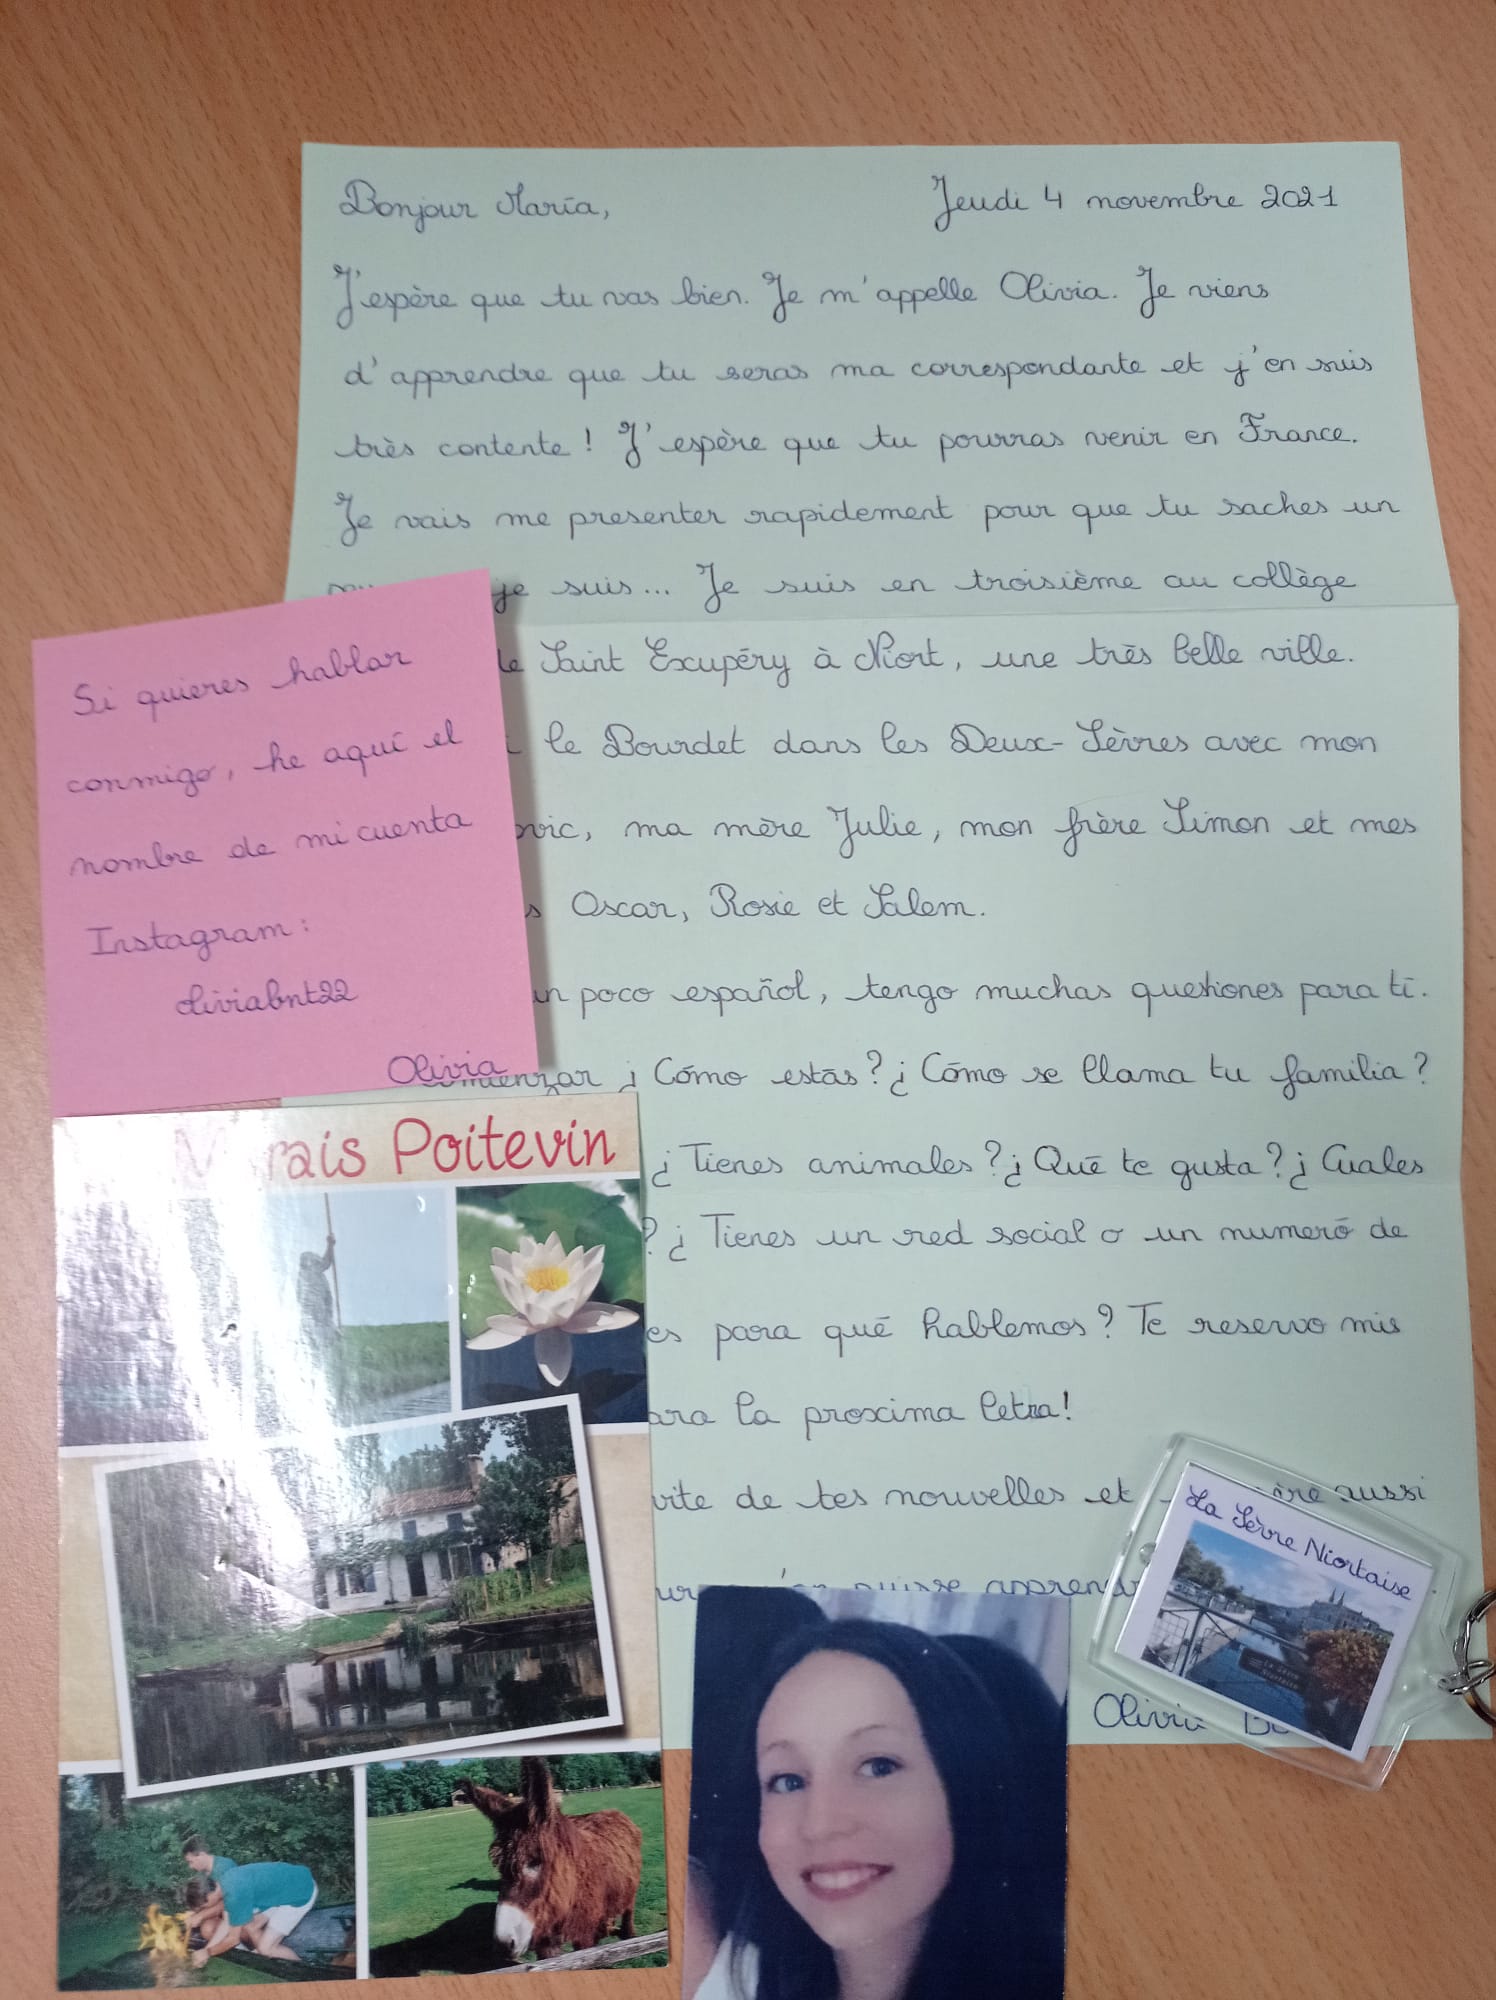 Bonjour María,
Jeudi 4 novembre 2021
J'espère que tu vas bien. Je m'appelle Olivia. Je viens
d'apprendre que tu seras ma correspondante et j'en suis
très contente ! J'espère que tu pourras venir en France.
Je vais me presenter rapidement pour que tu saches un
je suis... Je suis en troisième au collège
Saint Exupéry à Niort, une très belle ville.
le Bourdet dans les Deux-Sèvres avec mon
ma mère Julie, mon frère Simon et mes
Oscar, Rosie et Salem.
un poco español, tengo muchas questiones para tí.
¿ Cómo estás ? ¿ Cómo se llama tu familia ?
¿ Tienes animales ? ¿ Qué te gusta ? ¿ Cuales
? ¿ Tienes un red social o un numeró de
para qué hablemos ? Te reservo mis
la proxima letra !
vite de tes nouvelles et aussi
puisse
Olivia
Si quieres hablar
conmigo, he aquí el
nombre de mi cuenta
Instagram :
oliviabnt22
Olivia
Marais Poitevin
La Sèvre Niortaise
La Sèvre
Niortaise